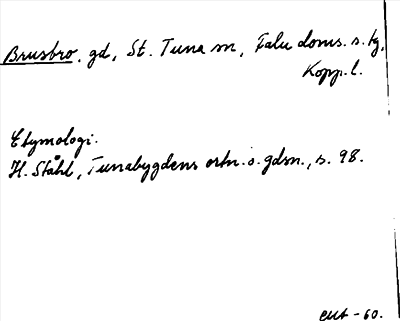 Brusbro, gd, St. Tuna sn, Falu doms. s. tg,
Kopp. l.
Etymologi.
H. Ståhl, Tunabygdens ortn. o. gdsn., s. 98.
-60.